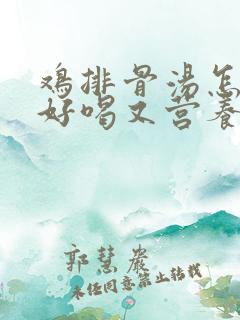 鸡排骨汤怎
好喝又营养
郭慧岩
未经同意禁止转载